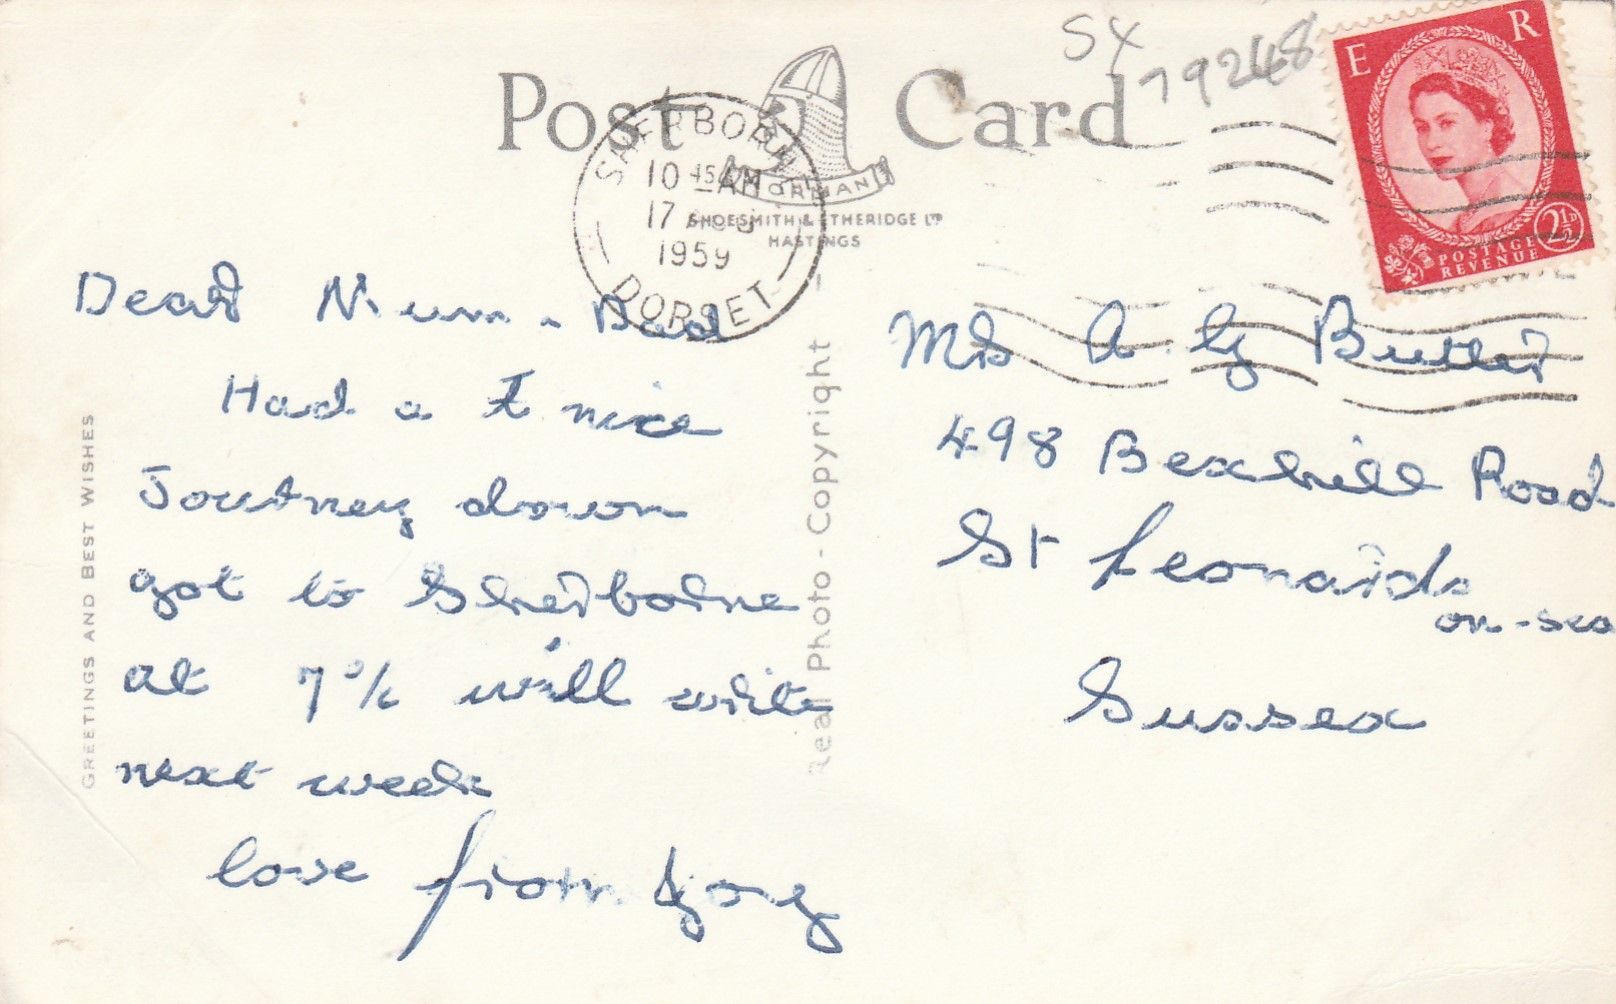 Post Card
SX
79248
E R
POSTAGE
REVENUE
2½D
SHERBORNE
10 45 AM
17
1959
DORSET
NORMAN
SHOESMITH & ETHERIDGE LTD
HASTINGS
GREETINGS AND BEST WISHES
Real Photo - Copyright
Dear Mum - Dad
Had a nice
Journey down
got to Sherborne
at 7 will write
next week
love from
A. G Butler
498 Bexhill Road
St Leonards
on-sea
Sussex